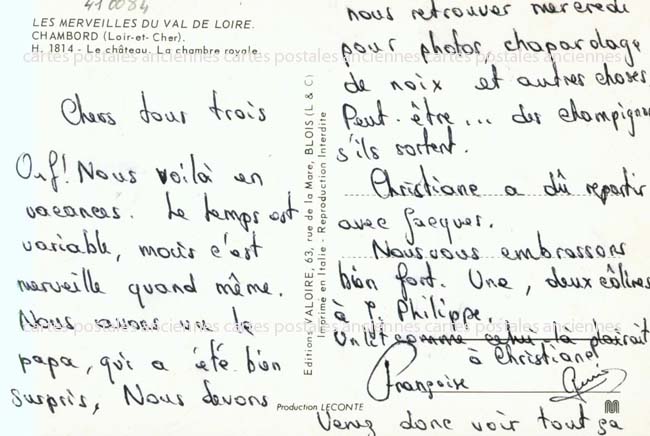 410084
LES MERVEILLES DU VAL DE LOIRE.
CHAMBORD (Loir-et-Cher).
H. 1814 - Le château. La chambre royale.
cartes postales anciennes cartes postales anciennes cartes postales anciennes
Chers tous trois
Ouf! Nous voilà en
vacances. Le temps est
variable, mais c'est
merveille quand même.
Nous avons vu le
papa, qui a été bien
surpris, Nous devons
Editions VALOIRE, 63, rue de la Mare, BLOIS (L & C)
Imprimé en Italie - Reproduction Interdite
nous retrouver mercredi
pour photos, chapardage
de noix et autres choses.
Peut-être... des champignons
s'ils sortent.
Christiane a dû repartir
avec Jacques.
Nous vous embrassons
bien fort. Une, deux câlines
à P. Philippe.
Un lit comme celui-là plairait
à Christiane!
Françoise
cartes postales anciennes cartes postales anciennes cartes postales anciennes
Production LECONTE
Venez donc voir tout ça